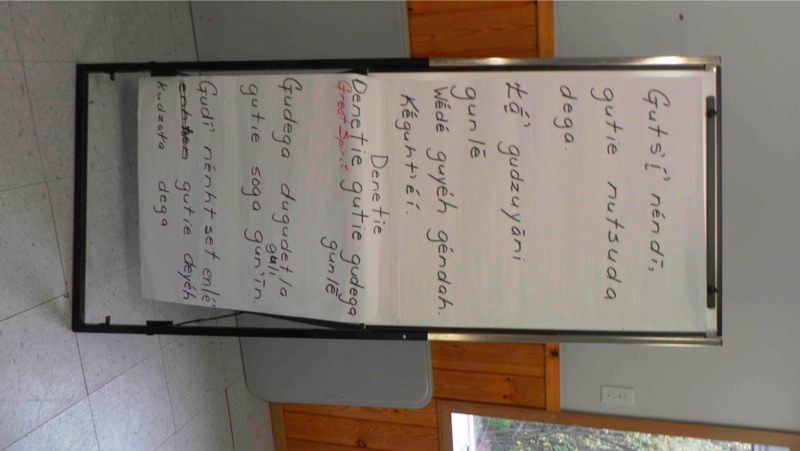 Guts'į́ néndī,
gutie nutsuda
dega.
Łą́ gudzuyāni
gunlē
Wédé guyéh géndah.
Kégunt'éi.
Denetie
Denetie gutie gudega
Great Spirit gunlē
Gudega dugudetła
guli
gutie soga gun'īn.
Gudī nénhtset enlé
gutie deyéh
kudzota dega